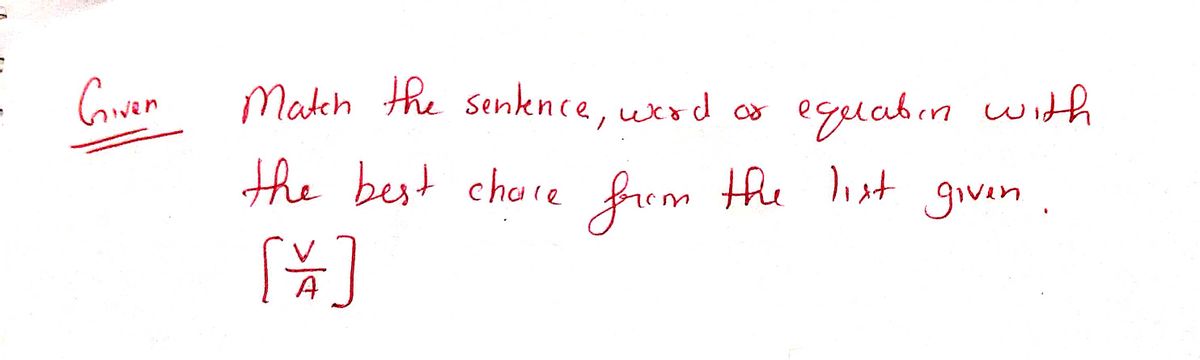 Given Match the sentence, word or equation with
the best choice from the list given.
[V/A]